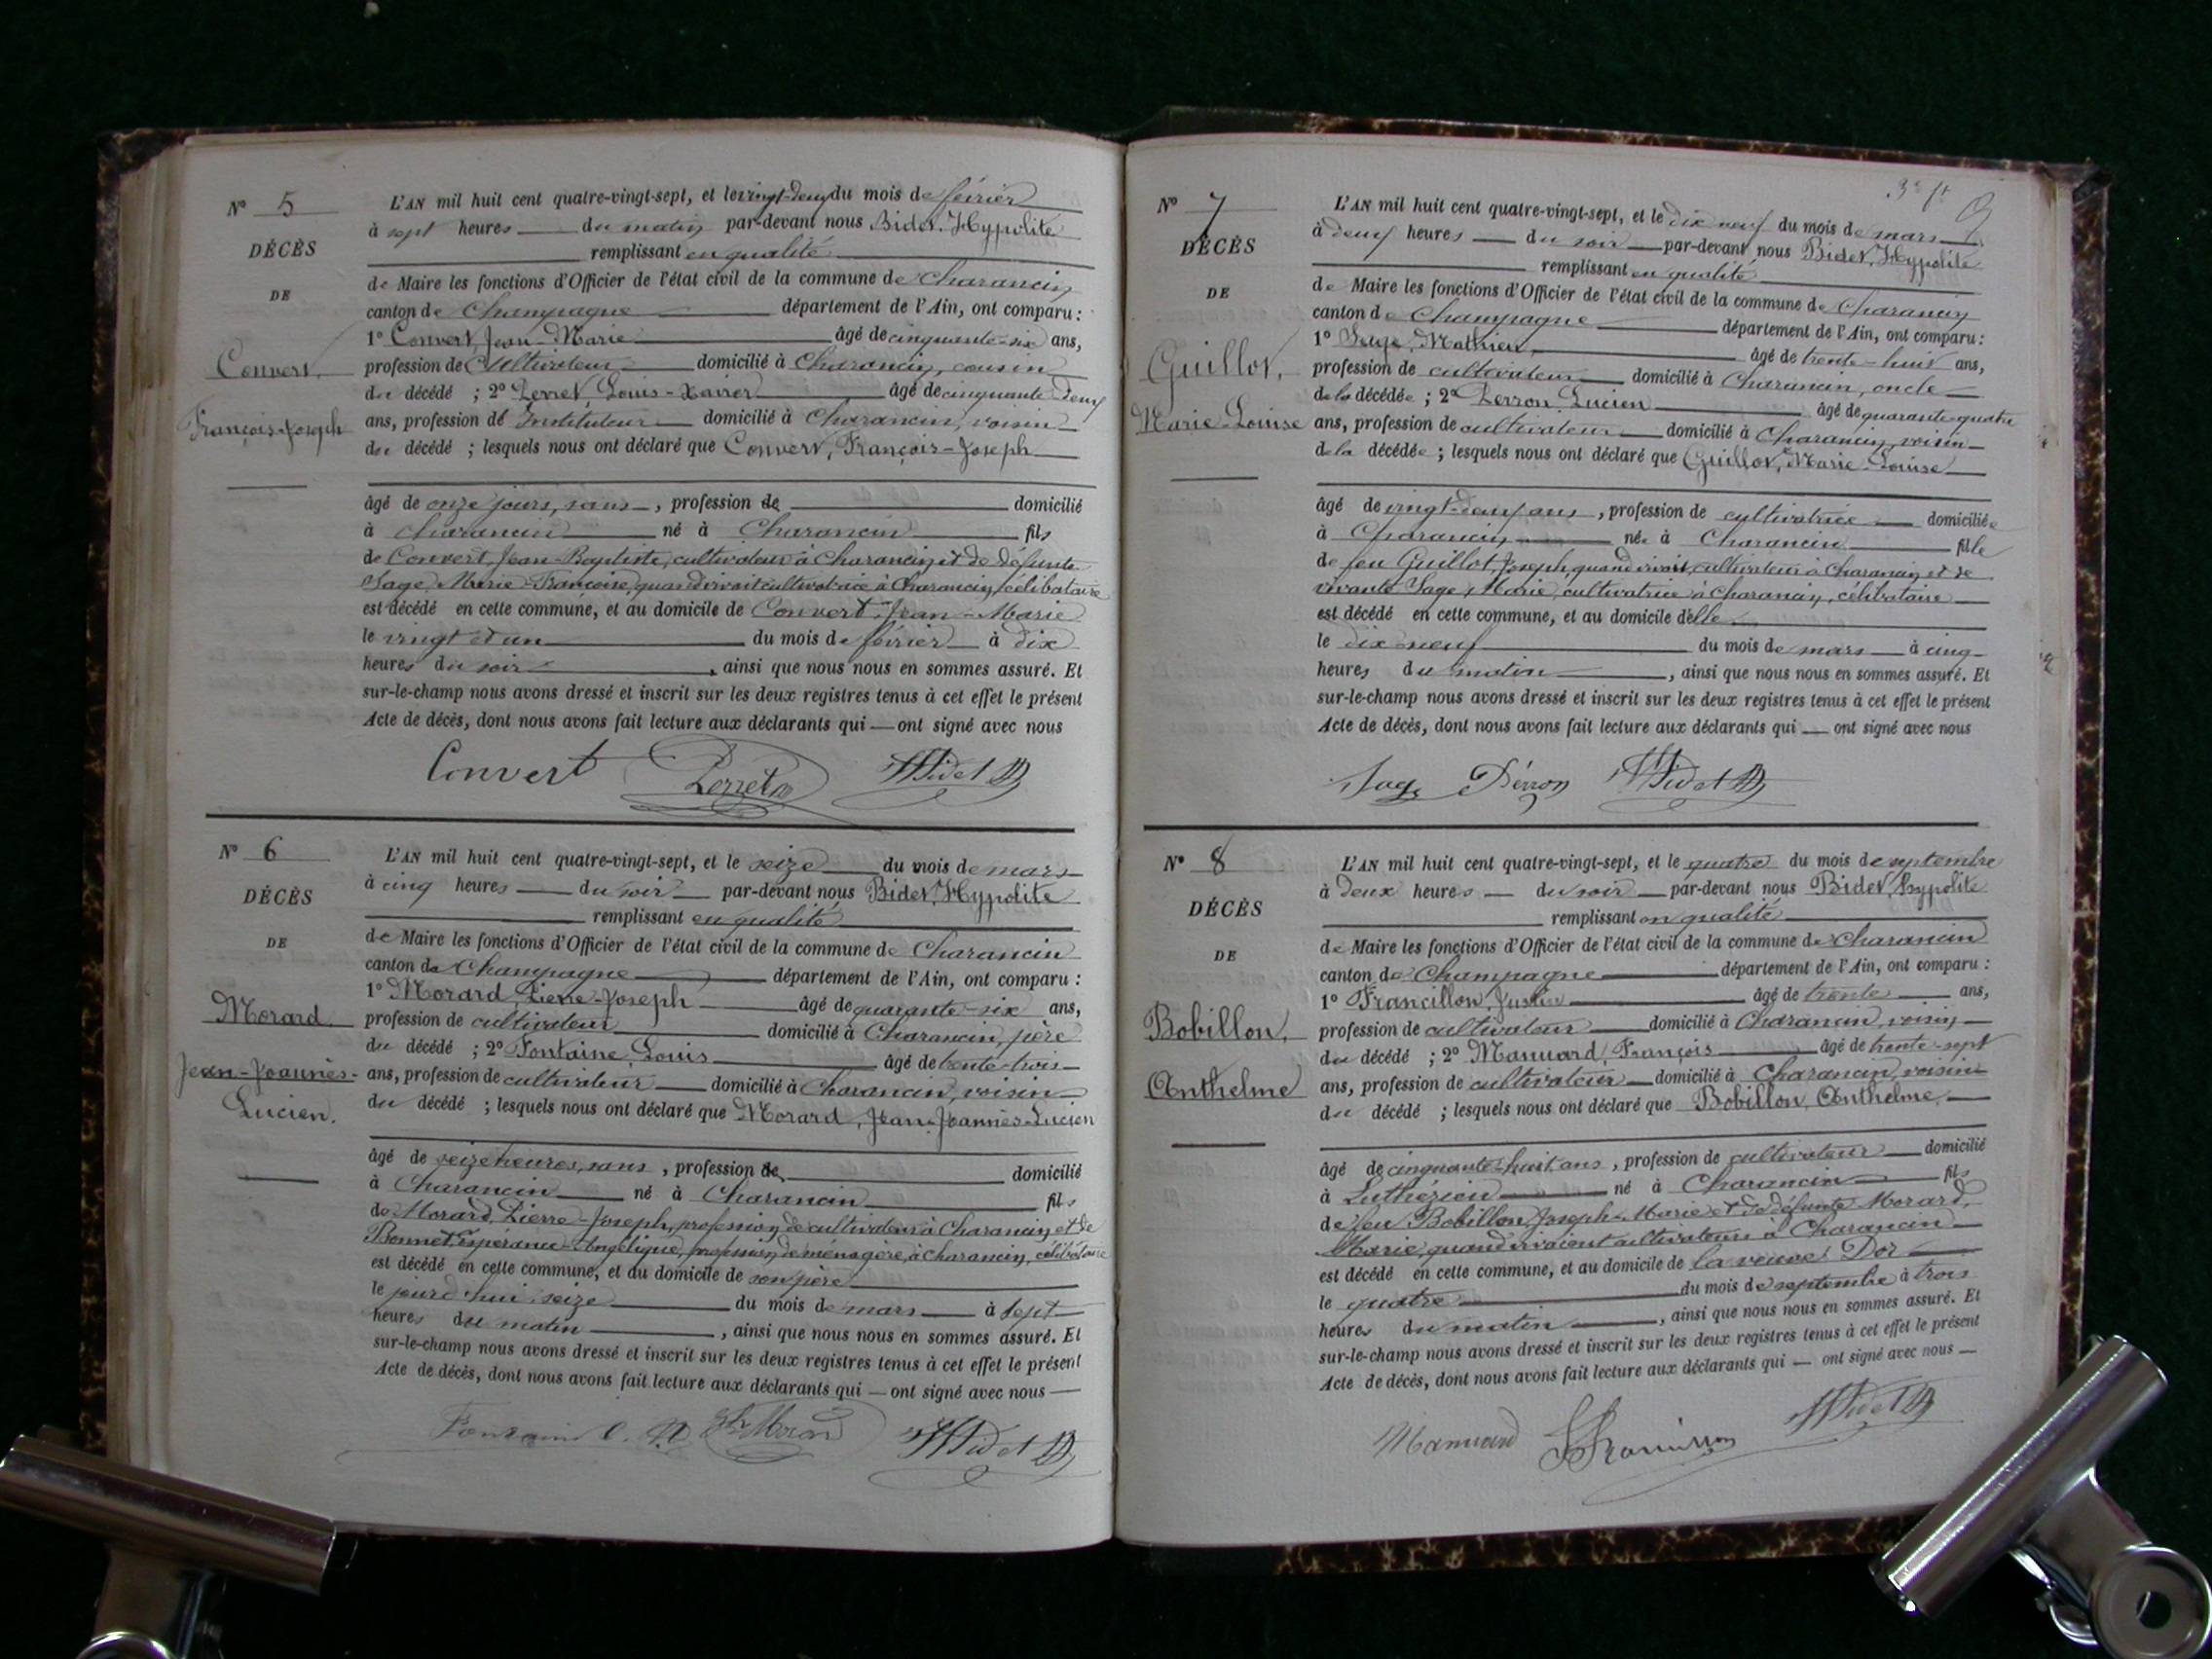 N° 5
DÉCÈS
DE
Convert,
François-Joseph
L'AN mil huit cent quatre-vingt-sept, et le vingt-deux du mois de février
à sept heures du matin par-devant nous Bidet, Hyppolite
remplissant en qualité
de Maire les fonctions d'Officier de l'état civil de la commune de Charancin
canton de Champagne département de l'Ain, ont comparu :
1° Convert, Jean-Marie âgé de cinquante-six ans,
profession de Cultivateur domicilié à Charancin, cousin
du décédé ; 2° Perret, Louis-Xavier âgé de cinquante deux
ans, profession de Instituteur domicilié à Charancin, voisin
du décédé ; lesquels nous ont déclaré que Convert, François-Joseph
âgé de onze jours, sans , profession de domicilié
à Charancin né à Charancin fils
de Convert, Jean-Baptiste, cultivateur à Charancin et de défunte
Sage, Marie-Françoise, quand vivait cultivatrice à Charancin, célibataire
est décédé en cette commune, et au domicile de Convert, Jean-Marie
le vingt et un du mois de février à dix
heures du soir , ainsi que nous nous en sommes assuré. Et
sur-le-champ nous avons dressé et inscrit sur les deux registres tenus à cet effet le présent
Acte de décès, dont nous avons fait lecture aux déclarants qui — ont signé avec nous
Convert Perret HBidet
N° 6
DÉCÈS
DE
Morard
Jean-Joannès-
Lucien.
L'AN mil huit cent quatre-vingt-sept, et le seize du mois de mars
à cinq heures du soir par-devant nous Bidet, Hyppolite
remplissant en qualité
de Maire les fonctions d'Officier de l'état civil de la commune de Charancin
canton de Champagne département de l'Ain, ont comparu :
1° Morard, Pierre-Joseph âgé de quarante-six ans,
profession de cultivateur domicilié à Charancin, père
du décédé ; 2° Fontaine Louis âgé de trente-trois
ans, profession de cultivateur domicilié à Charancin, voisin
du décédé ; lesquels nous ont déclaré que Morard, Jean-Joannès-Lucien
âgé de seize heures, sans , profession de domicilié
à Charancin né à Charancin fils
de Morard, Pierre-Joseph, profession de cultivateur à Charancin et de
Bonnet Espérance-Angélique, profession de ménagère, à Charancin, célibataire
est décédé en cette commune, et au domicile de son père
le jourd'hui seize du mois de mars à sept
heures du matin , ainsi que nous nous en sommes assuré. Et
sur-le-champ nous avons dressé et inscrit sur les deux registres tenus à cet effet le présent
Acte de décès, dont nous avons fait lecture aux déclarants qui — ont signé avec nous —
Fontaine Morard HBidet
N° 7
DÉCÈS
DE
Guillot,
Marie-Louise
L'AN mil huit cent quatre-vingt-sept, et le dix neuf du mois de mars
à deux heures du soir par-devant nous Bidet, Hyppolite
remplissant en qualité
de Maire les fonctions d'Officier de l'état civil de la commune de Charancin
canton de Champagne département de l'Ain, ont comparu :
1° Sage, Mathieu, âgé de trente-huit ans,
profession de cultivateur domicilié à Charancin, oncle
de la décédée ; 2° Perron Lucien âgé de quarante-quatre
ans, profession de cultivateur domicilié à Charancin, voisin
de la décédée ; lesquels nous ont déclaré que Guillot, Marie-Louise
âgé de vingt-deux ans , profession de cultivatrice domiciliée
à Charancin née à Charancin fille
de feu Guillot, Joseph, quand vivait, cultivateur à Charancin et de
vivante Sage, Marie, cultivatrice à Charancin, célibataire
est décédé en cette commune, et au domicile d'elle
le dix-neuf du mois de mars à cinq
heures du matin , ainsi que nous nous en sommes assuré. Et
sur-le-champ nous avons dressé et inscrit sur les deux registres tenus à cet effet le présent
Acte de décès, dont nous avons fait lecture aux déclarants qui — ont signé avec nous
Sage Pérron HBidet
N° 8
DÉCÈS
DE
Bobillon,
Anthelme
L'AN mil huit cent quatre-vingt-sept, et le quatre du mois de septembre
à deux heures du soir par-devant nous Bidet, Hyppolite
remplissant en qualité
de Maire les fonctions d'Officier de l'état civil de la commune de Charancin
canton de Champagne département de l'Ain, ont comparu :
1° Francillon, Justin âgé de trente ans,
profession de cultivateur domicilié à Charancin, voisin
du décédé ; 2° Manuard, François âgé de trente-sept
ans, profession de cultivateur domicilié à Charancin, voisin
du décédé ; lesquels nous ont déclaré que Bobillon, Anthelme,
âgé de cinquante-huit ans , profession de cultivateur domicilié
à Luthézieu né à Charancin fils
de feu Bobillon, Joseph-Marie et de défunte Morard,
Marie, quand vivaient cultivateurs à Charancin
est décédé en cette commune, et au domicile de la veuve Dor
le quatre du mois de septembre à trois
heures du matin , ainsi que nous nous en sommes assuré. Et
sur-le-champ nous avons dressé et inscrit sur les deux registres tenus à cet effet le présent
Acte de décès, dont nous avons fait lecture aux déclarants qui — ont signé avec nous —
Manuard HBidet